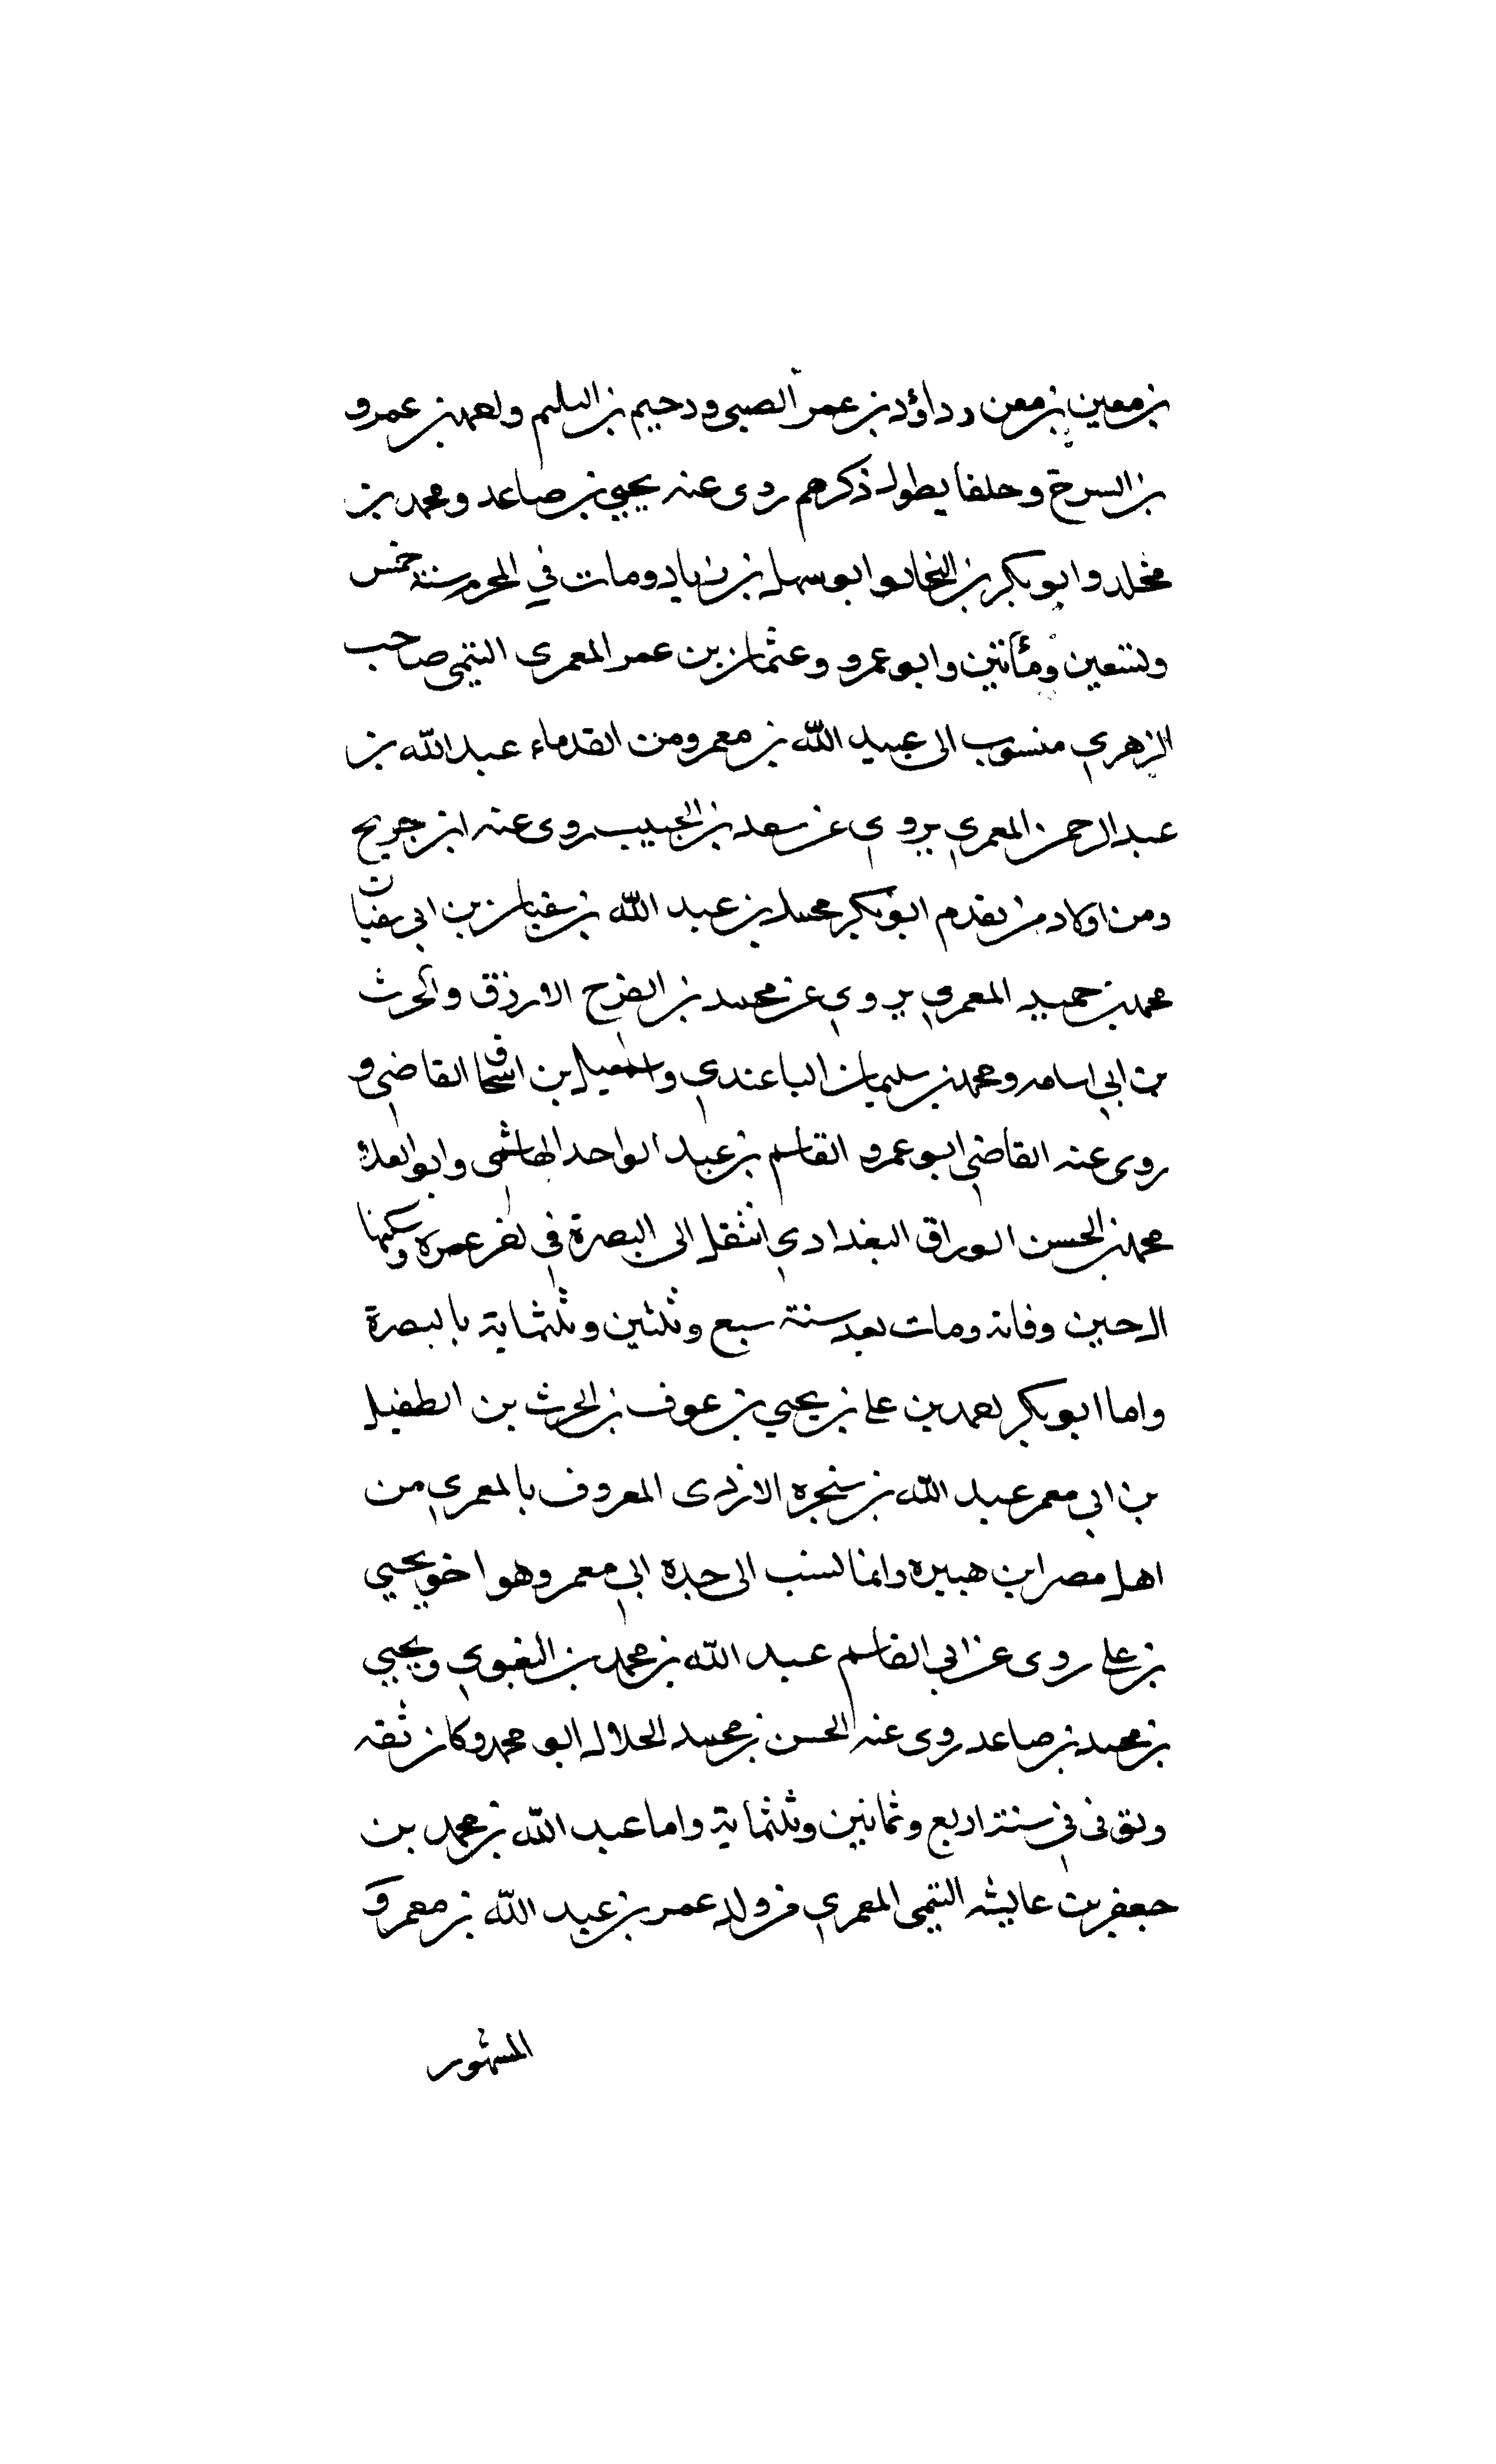 بن معين بن معن و داؤد بن عمر الضبي ودحيم بن اليتيم واحمد بن عمرو
بن السرح وخلقا يطول ذكرهم روى عنه يحيى بن صاعد ومحمد بن
مخلد وابو بكر بن النجاد وابو سهل بن زياد ومات في المحرم سنة خمس
وتسعين ومأتين وابو عمرو وعثمان بن عمر المعمرى التيمى صاحب
الزهري منسوب الى عبيد الله بن معمر ومن القدماء عبد الله بن
عبد الرحمن المعمري يروي عن سعد بن الحبيب روى عنه ابن جريج
ومن اولاد من تقدم ابو بكر محمد بن عبد الله بن سفيان بن ابي سفيان
محمد بن حميد المعمري يروي عن محمد بن الفرح الازرق والحرث
بن ابي اسامه ومحمد بن سليمان الباغندي واسمعيل بن اسحاق القاضي و
روى عنه القاضي ابو عمرو القاسم بن عبد الواحد الهاشمي وابو العلاء
محمد بن الحسن الوراق البغدادي انتقل الى البصرة في اخر عمره وسكنها
الى حين وفاته ومات بعد سنة سبع وثلثين وثلثماية بالبصرة
واما ابو بكر احمد بن علي بن يحيى بن عوف بن الحرث بن الطفيل
بن ابي معمر عبد الله بن سنجره الازدى المعروف بالمعمري من
اهل مصر ابن هبيره وانما نسب الى جده ابي معمر وهو اخو يحيى
بن علي روى عن ابي القاسم عبد الله بن محمد بن البغوي ويحيى
بن محمد بن صاعد روى عنه الحسن بن محمد الخلال ابو محمد وكان ثقه
وتوفى في سنة اربع وثمانين وثلثماية واما عبد الله بن محمد بن
جعفر بن عايشه التيمى المعمري من ولد عمر بن عبد الله بن معمر و
المشهور